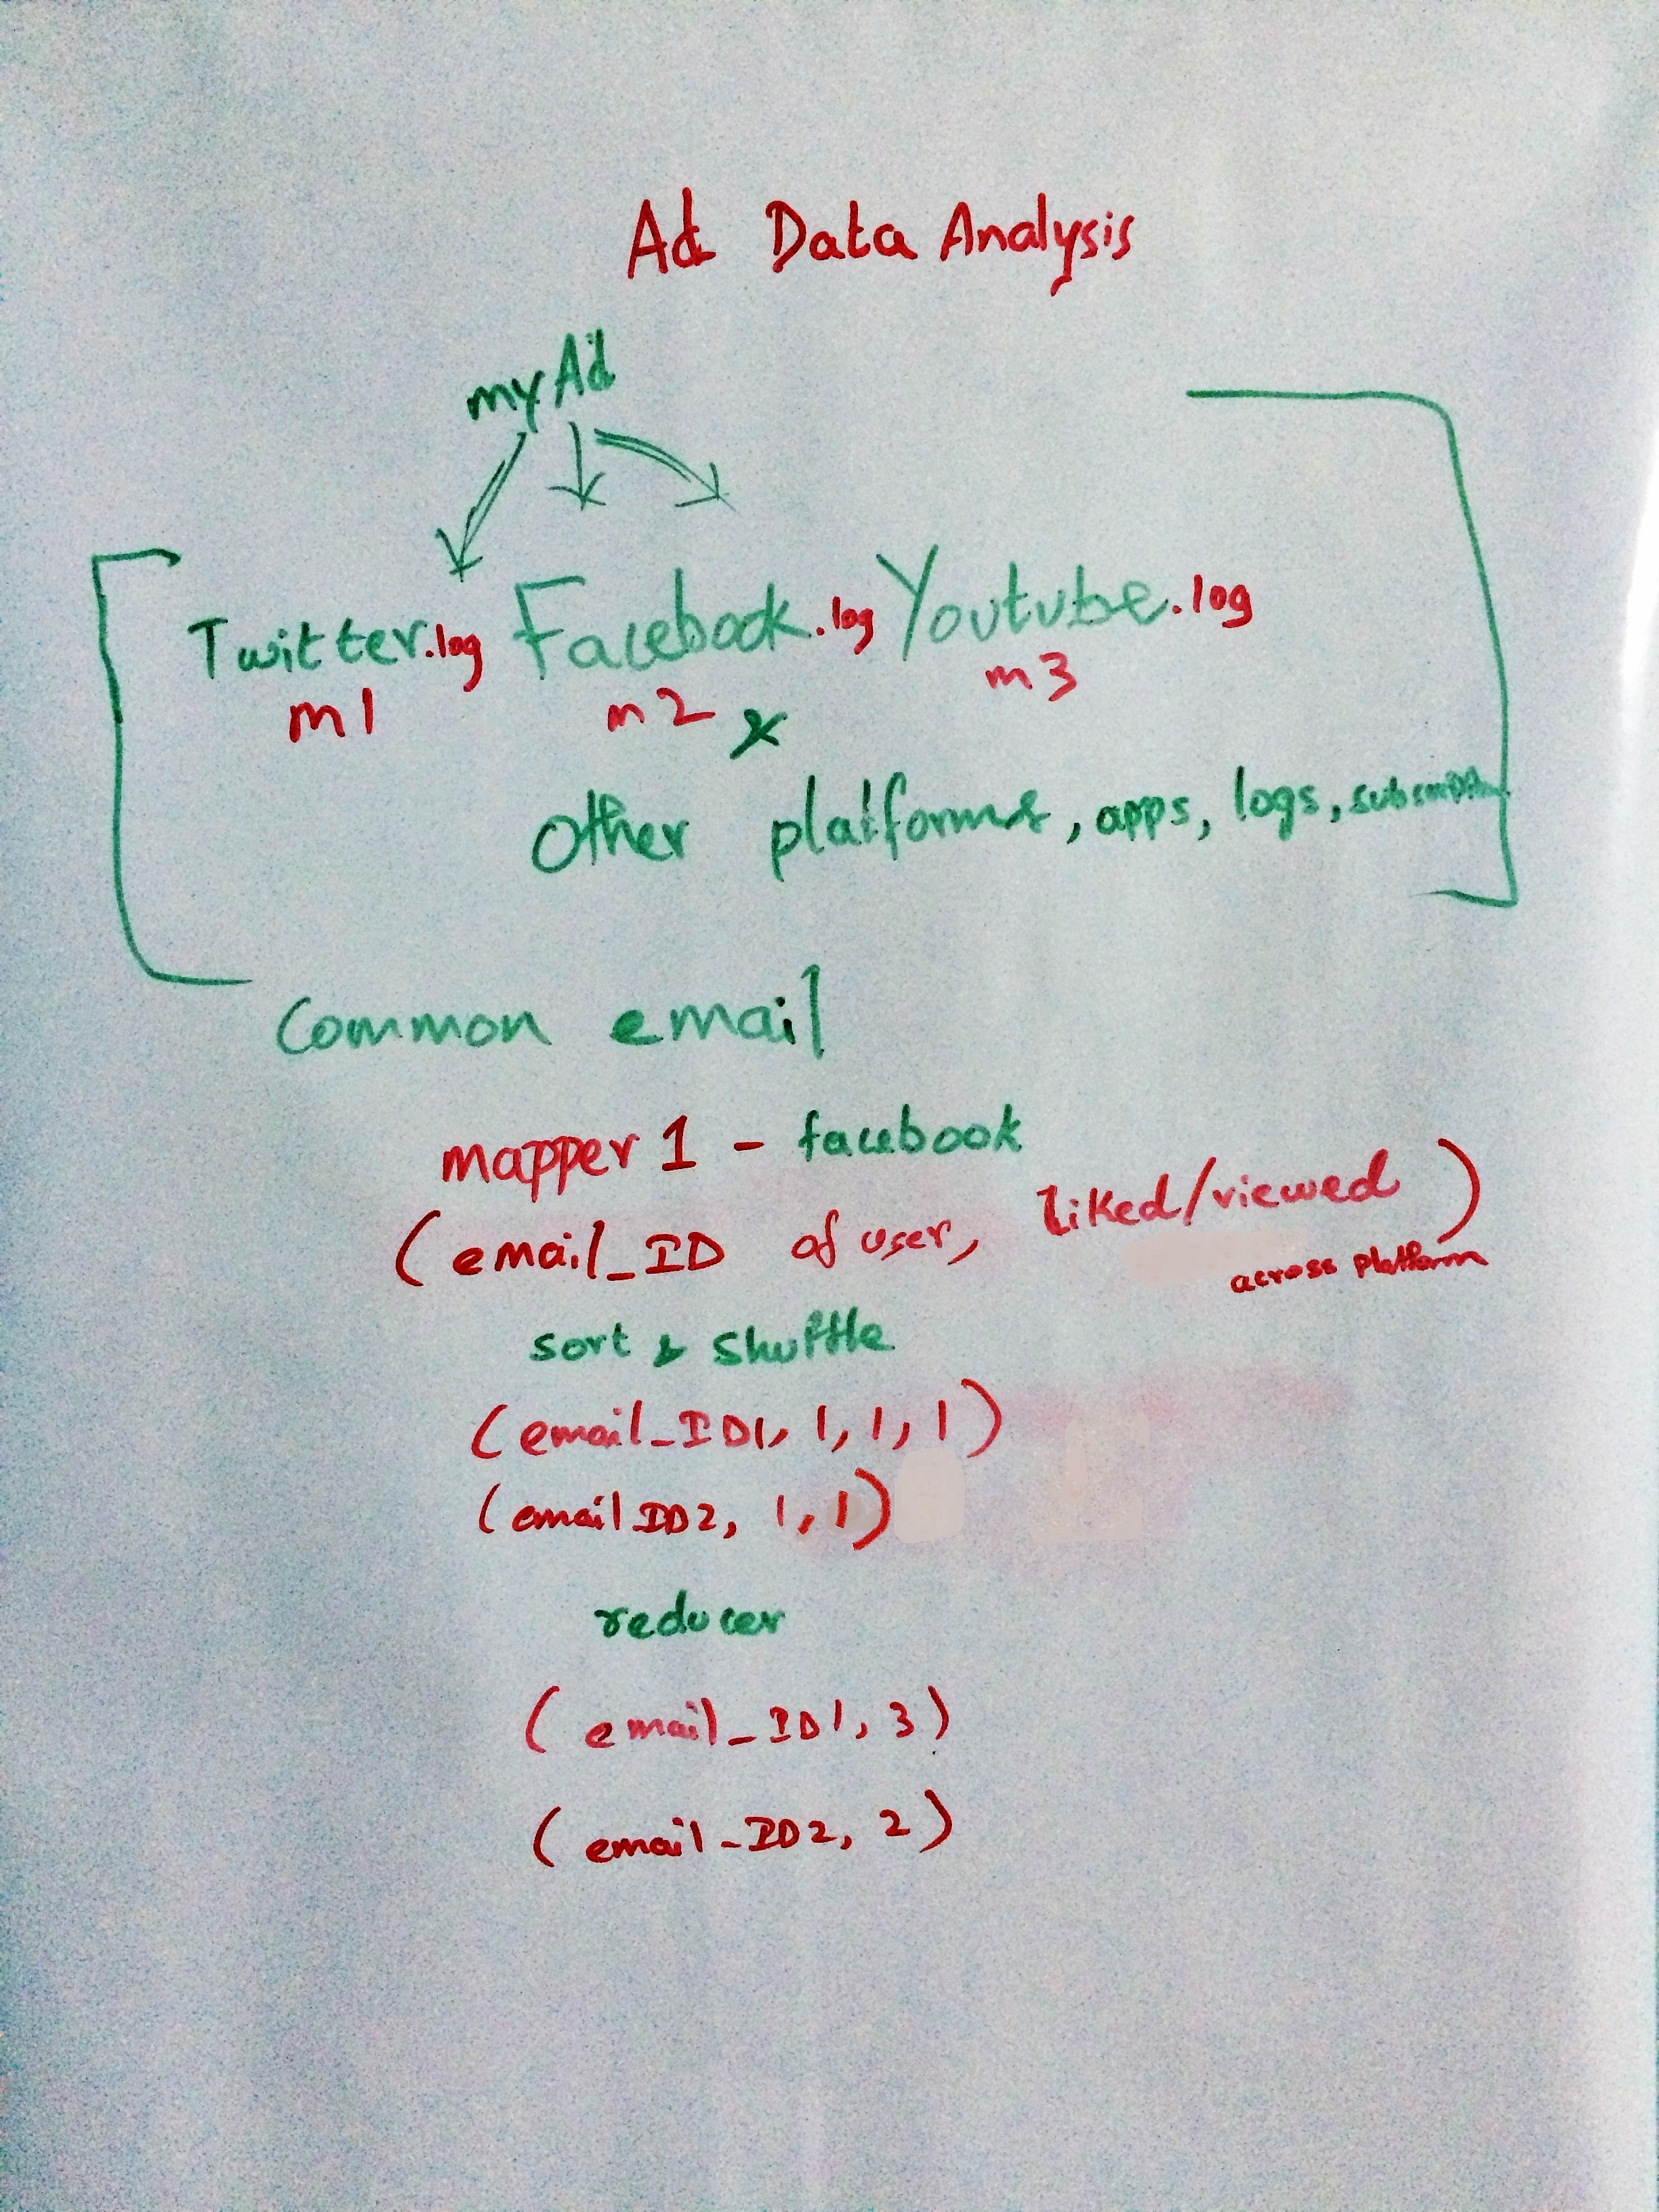 Ad Data Analysis
my Ad
Twitter.log Facebook.log Youtube.log
m1 m2 m3
&
Other platforms, apps, logs,
Common email
mapper 1 - facebook
(email_ID of user, liked/viewed)
across platform
sort & shuffle
(email_ID1, 1, 1, 1)
(email ID2, 1, 1)
reducer
(email_ID1, 3)
(email_ID2, 2)